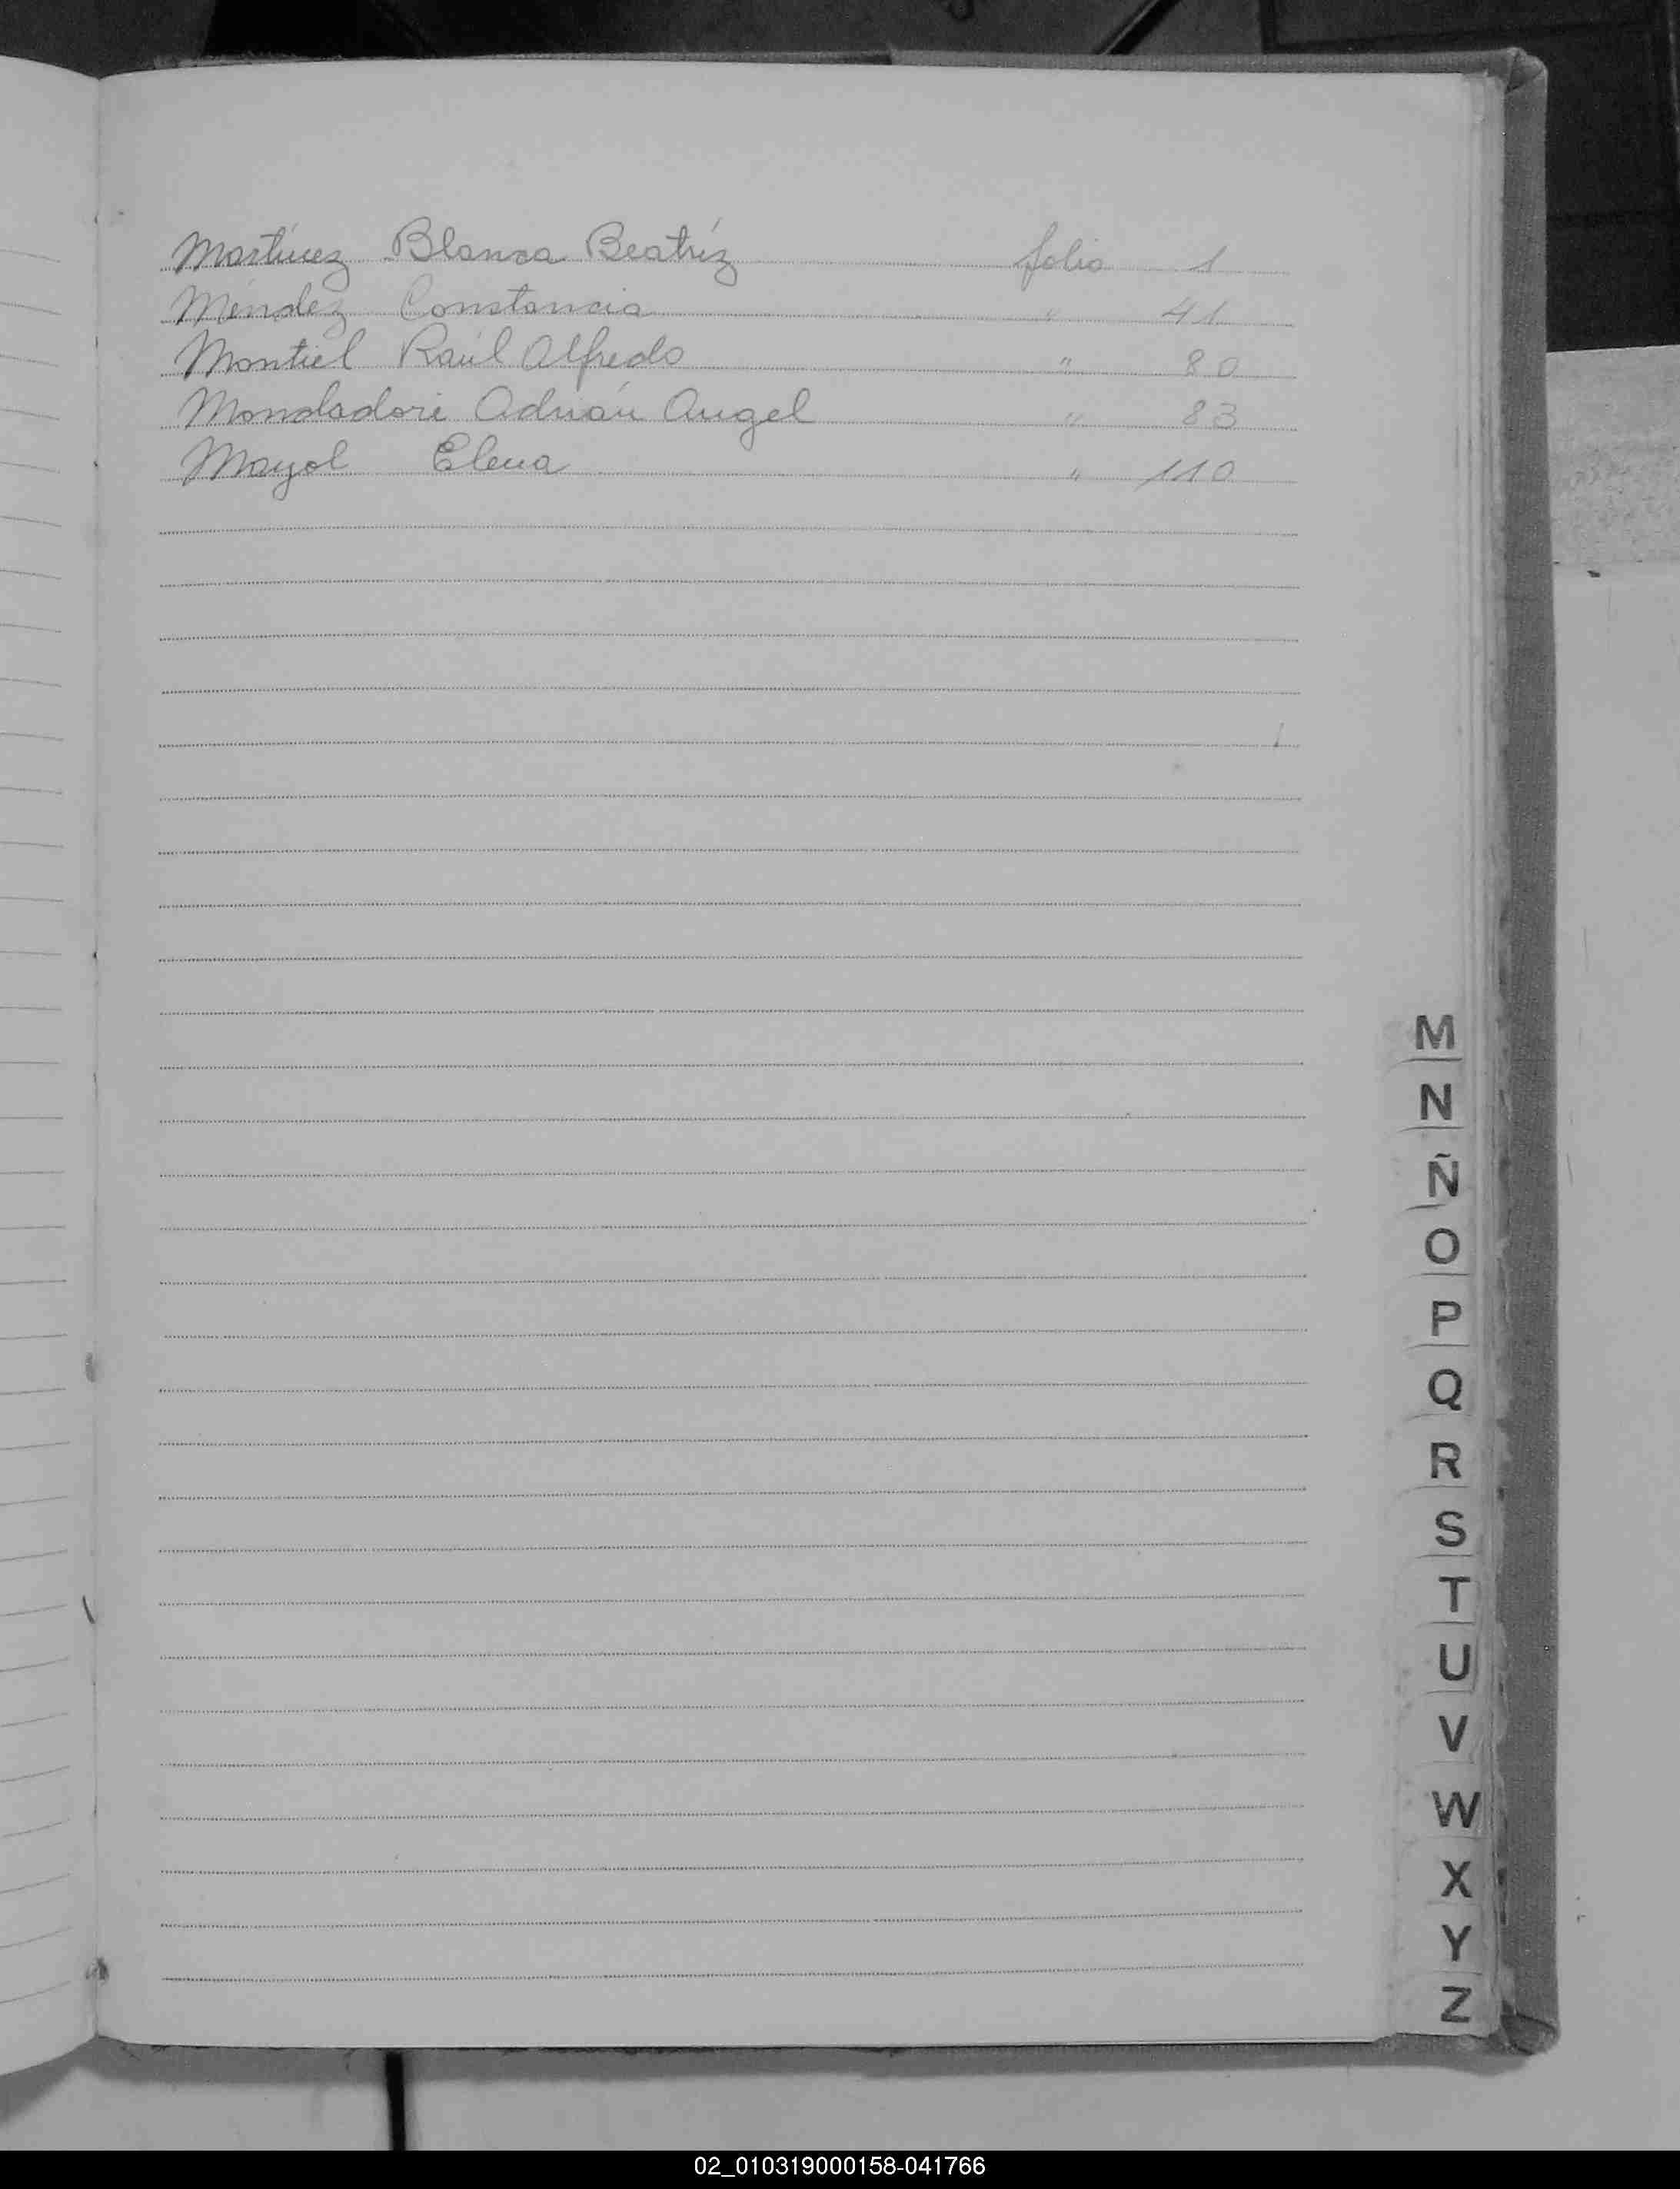 Martínez Blanca Beatríz folio 1
Méndez Constancia " 41
Montiel Raúl Alfredo " 80
Mondadori Adrián Angel " 83
Mayol Elena " 110
M
N
Ñ
O
P
Q
R
S
T
U
V
W
X
Y
Z
02_010319000158-041766